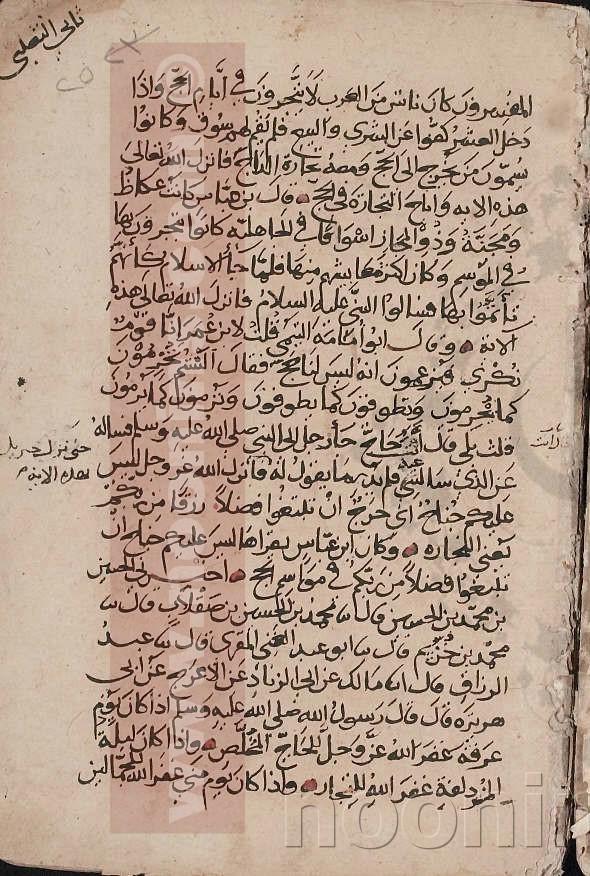 ثاني الثعلبي
المفسرون كان ناس من العرب لا يتجرون في أيام الحج وإذا
دخل العشر كفوا عن الشرى والبيع فلم يقم لهم سوق وكانوا
يسمون من يخرج إلى الحج ومعه تجارة الداج فأنزل الله تعالى
هذه الآية وأباح التجارة في الحج قال بن عباس كانت عكاظ
ومجنة وذو المجاز أسواقا في الجاهلية كانوا يتجرون بها
في الموسم وكان أكثر معايشهم منها فلما جاء الإسلام كأنهم
تأثموا بها فسألوا النبي عليه السلام فأنزل الله تعالى هذه
الآية وقال أبو أمامة التيمي قلت لابن عمر إنا قوم
نكري فيزعمون أنه ليس لنا حج فقال ألستم تحرمون
كما يحرمون وتطوفون كما يطوفون وترمون كما يرمون
قلت بلى قال أنت حاج جاء رجل إلى النبي صلى الله عليه وسلم فسأله
عن الذي سألتني عنه فلم يدر ما يقول له فأنزل الله عز وجل ليس
حتى نزل جبريل
بهذه الآية
عليكم جناح أي حرج أن تبتغوا فضلا رزقا من ربكم
يعني التجارة وكان ابن عباس يقرأها ليس عليكم جناح أن
تبتغوا فضلا من ربكم في مواسم الحج الحسين
بن محمد بن الحسين قال محمد بن الحسين بن صقلاب قال
محمد بن خزيم قال أبو عبد الغني المقري قال عبد
الرزاق قال مالك عن أبي الزناد عن الأعرج عن أبي
هريرة قال قال رسول الله صلى الله عليه وسلم إذا كان يوم
عرفة غفر الله عز وجل للحاج المخلص وإذا كان ليلة
المزدلفة غفر الله للتجار وإذا كان يوم منى غفر الله للجمالين
noonin